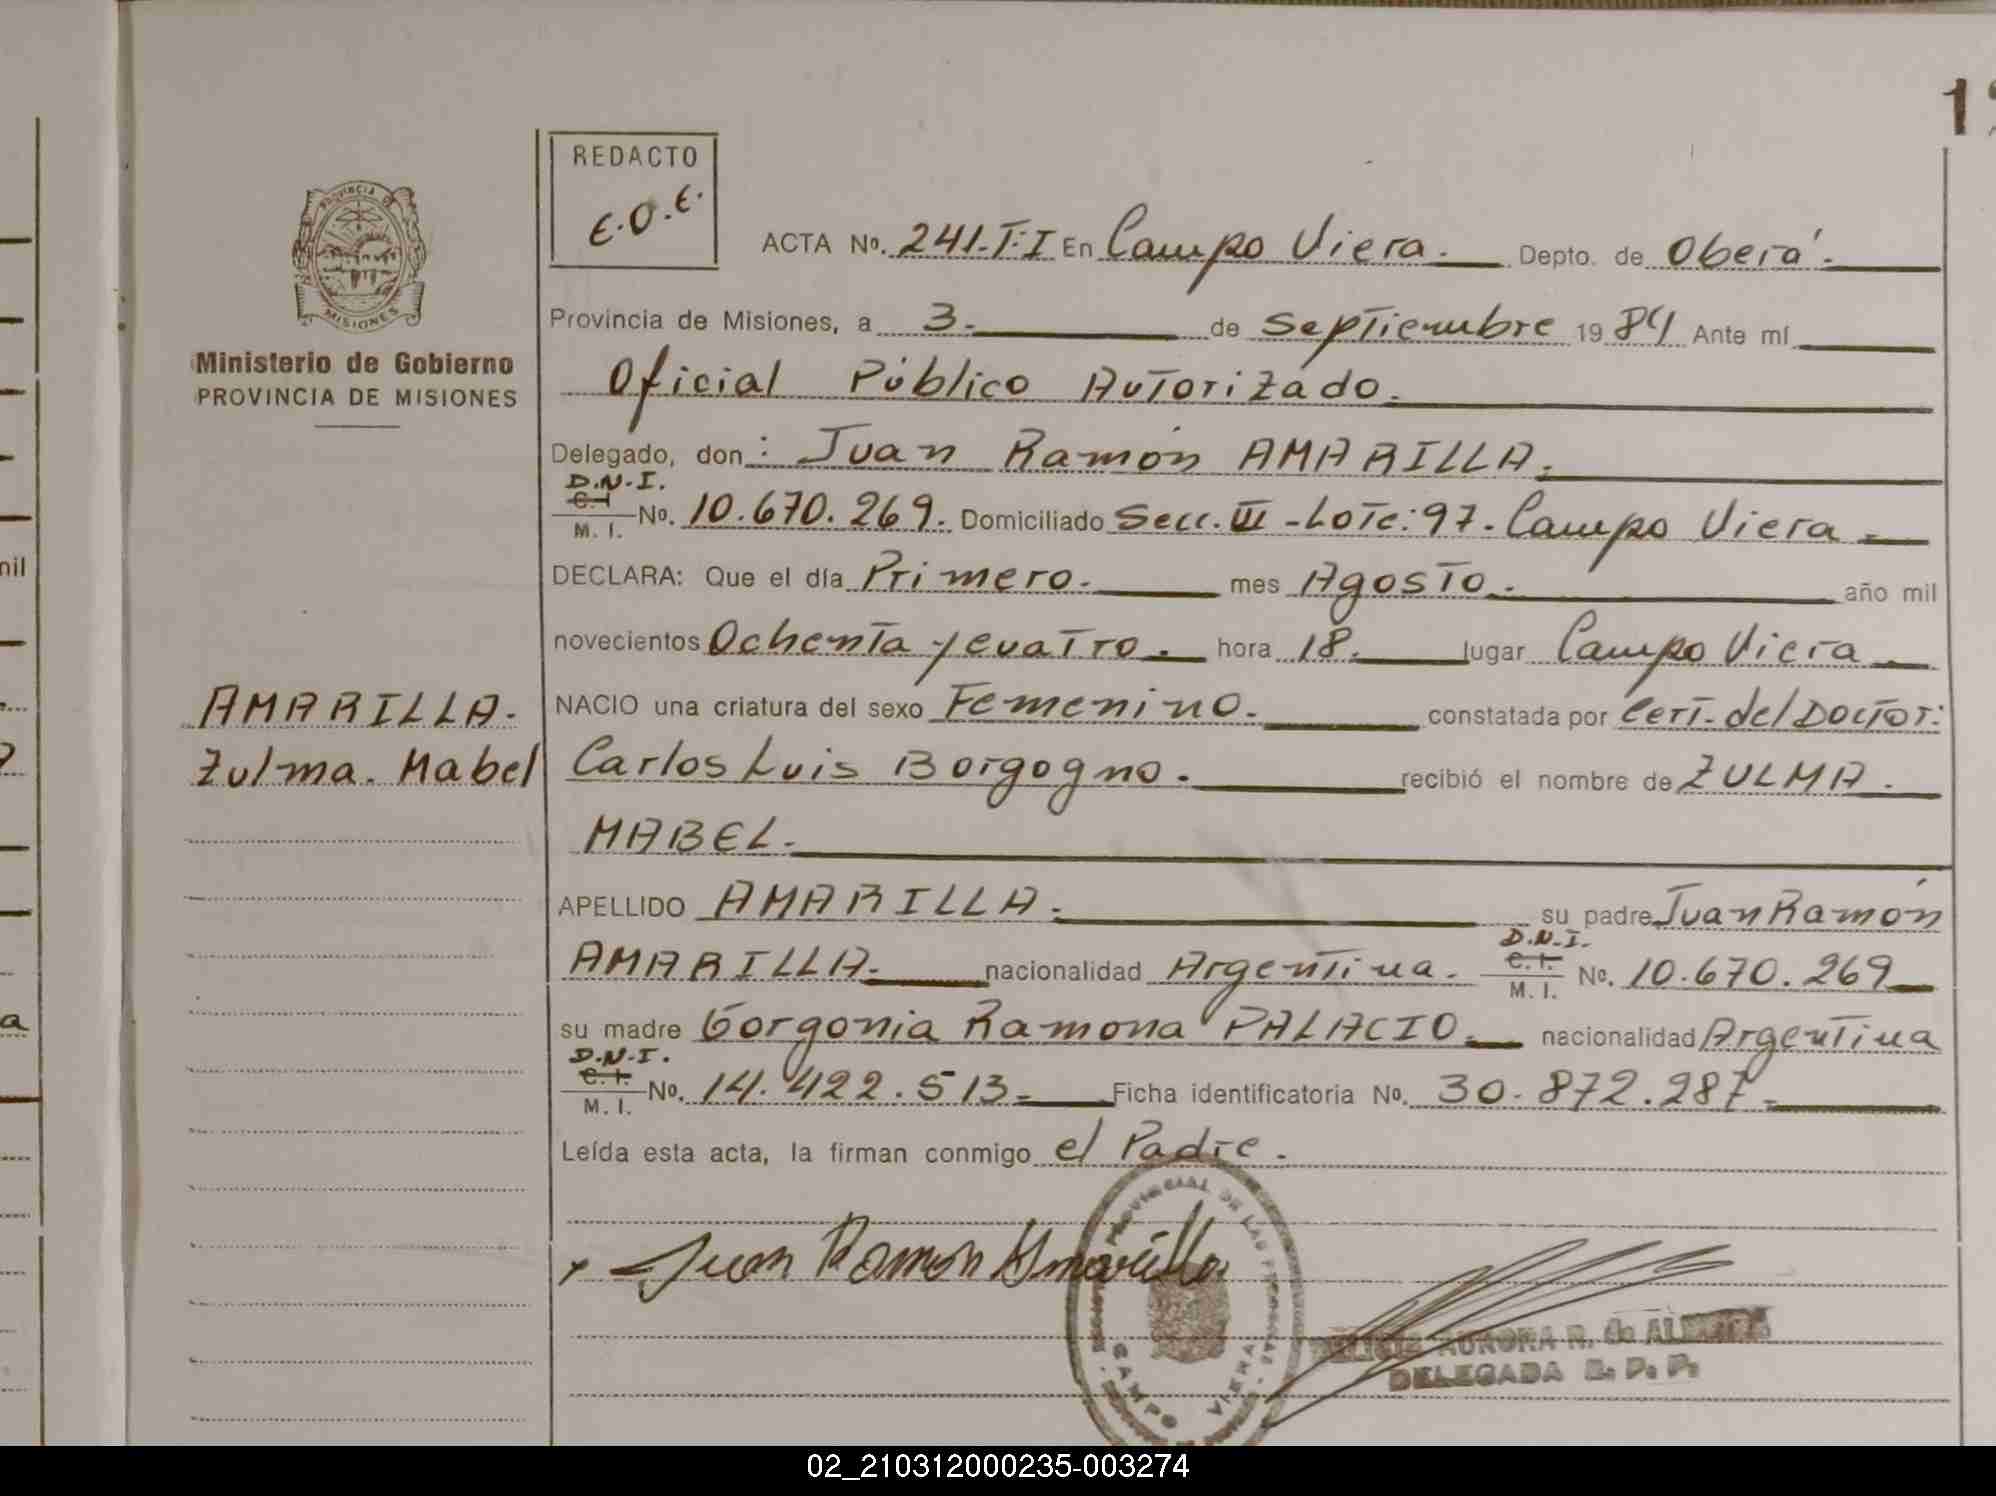 12
REDACTO
E.O.E.
PROVINCIA DE
MISIONES
Ministerio de Gobierno
PROVINCIA DE MISIONES
ACTA No. 241-T:I En Campo Viera. Depto. de Oberá.
Provincia de Misiones, a 3. de Septiembre 1984 Ante mí
Oficial Público Autorizado.
Delegado, don: Juan Ramón AMARILLA.
D.N.I.
C.I. M. I. No. 10.670.269. Domiciliado Secc. III - Lote: 97. Campo Viera
DECLARA: Que el día Primero. mes Agosto. año mil
novecientos Ochenta y cuatro. hora 18. lugar Campo Viera
AMARILLA.
Zulma. Mabel
NACIO una criatura del sexo Femenino. constatada por Cert. del Doctor:
Carlos Luis Borgogno. recibió el nombre de ZULMA.
MABEL.
APELLIDO AMARILLA. su padre Juan Ramón
D.N.I.
AMARILLA. nacionalidad Argentina. C.I. M. I. No. 10.670.269
su madre Gorgonia Ramona PALACIO. nacionalidad Argentina
D.N.I.
C.I. M. I. No. 14.422.513. Ficha identificatoria No. 30.872.287.
Leída esta acta, la firman conmigo el Padre.
x Juan Ramón Amarilla
PROVINCIAL DE LAS
CAMPO VIERA
AURORA R. de
DELEGADA R. P. P.
nil
a
02_210312000235-003274